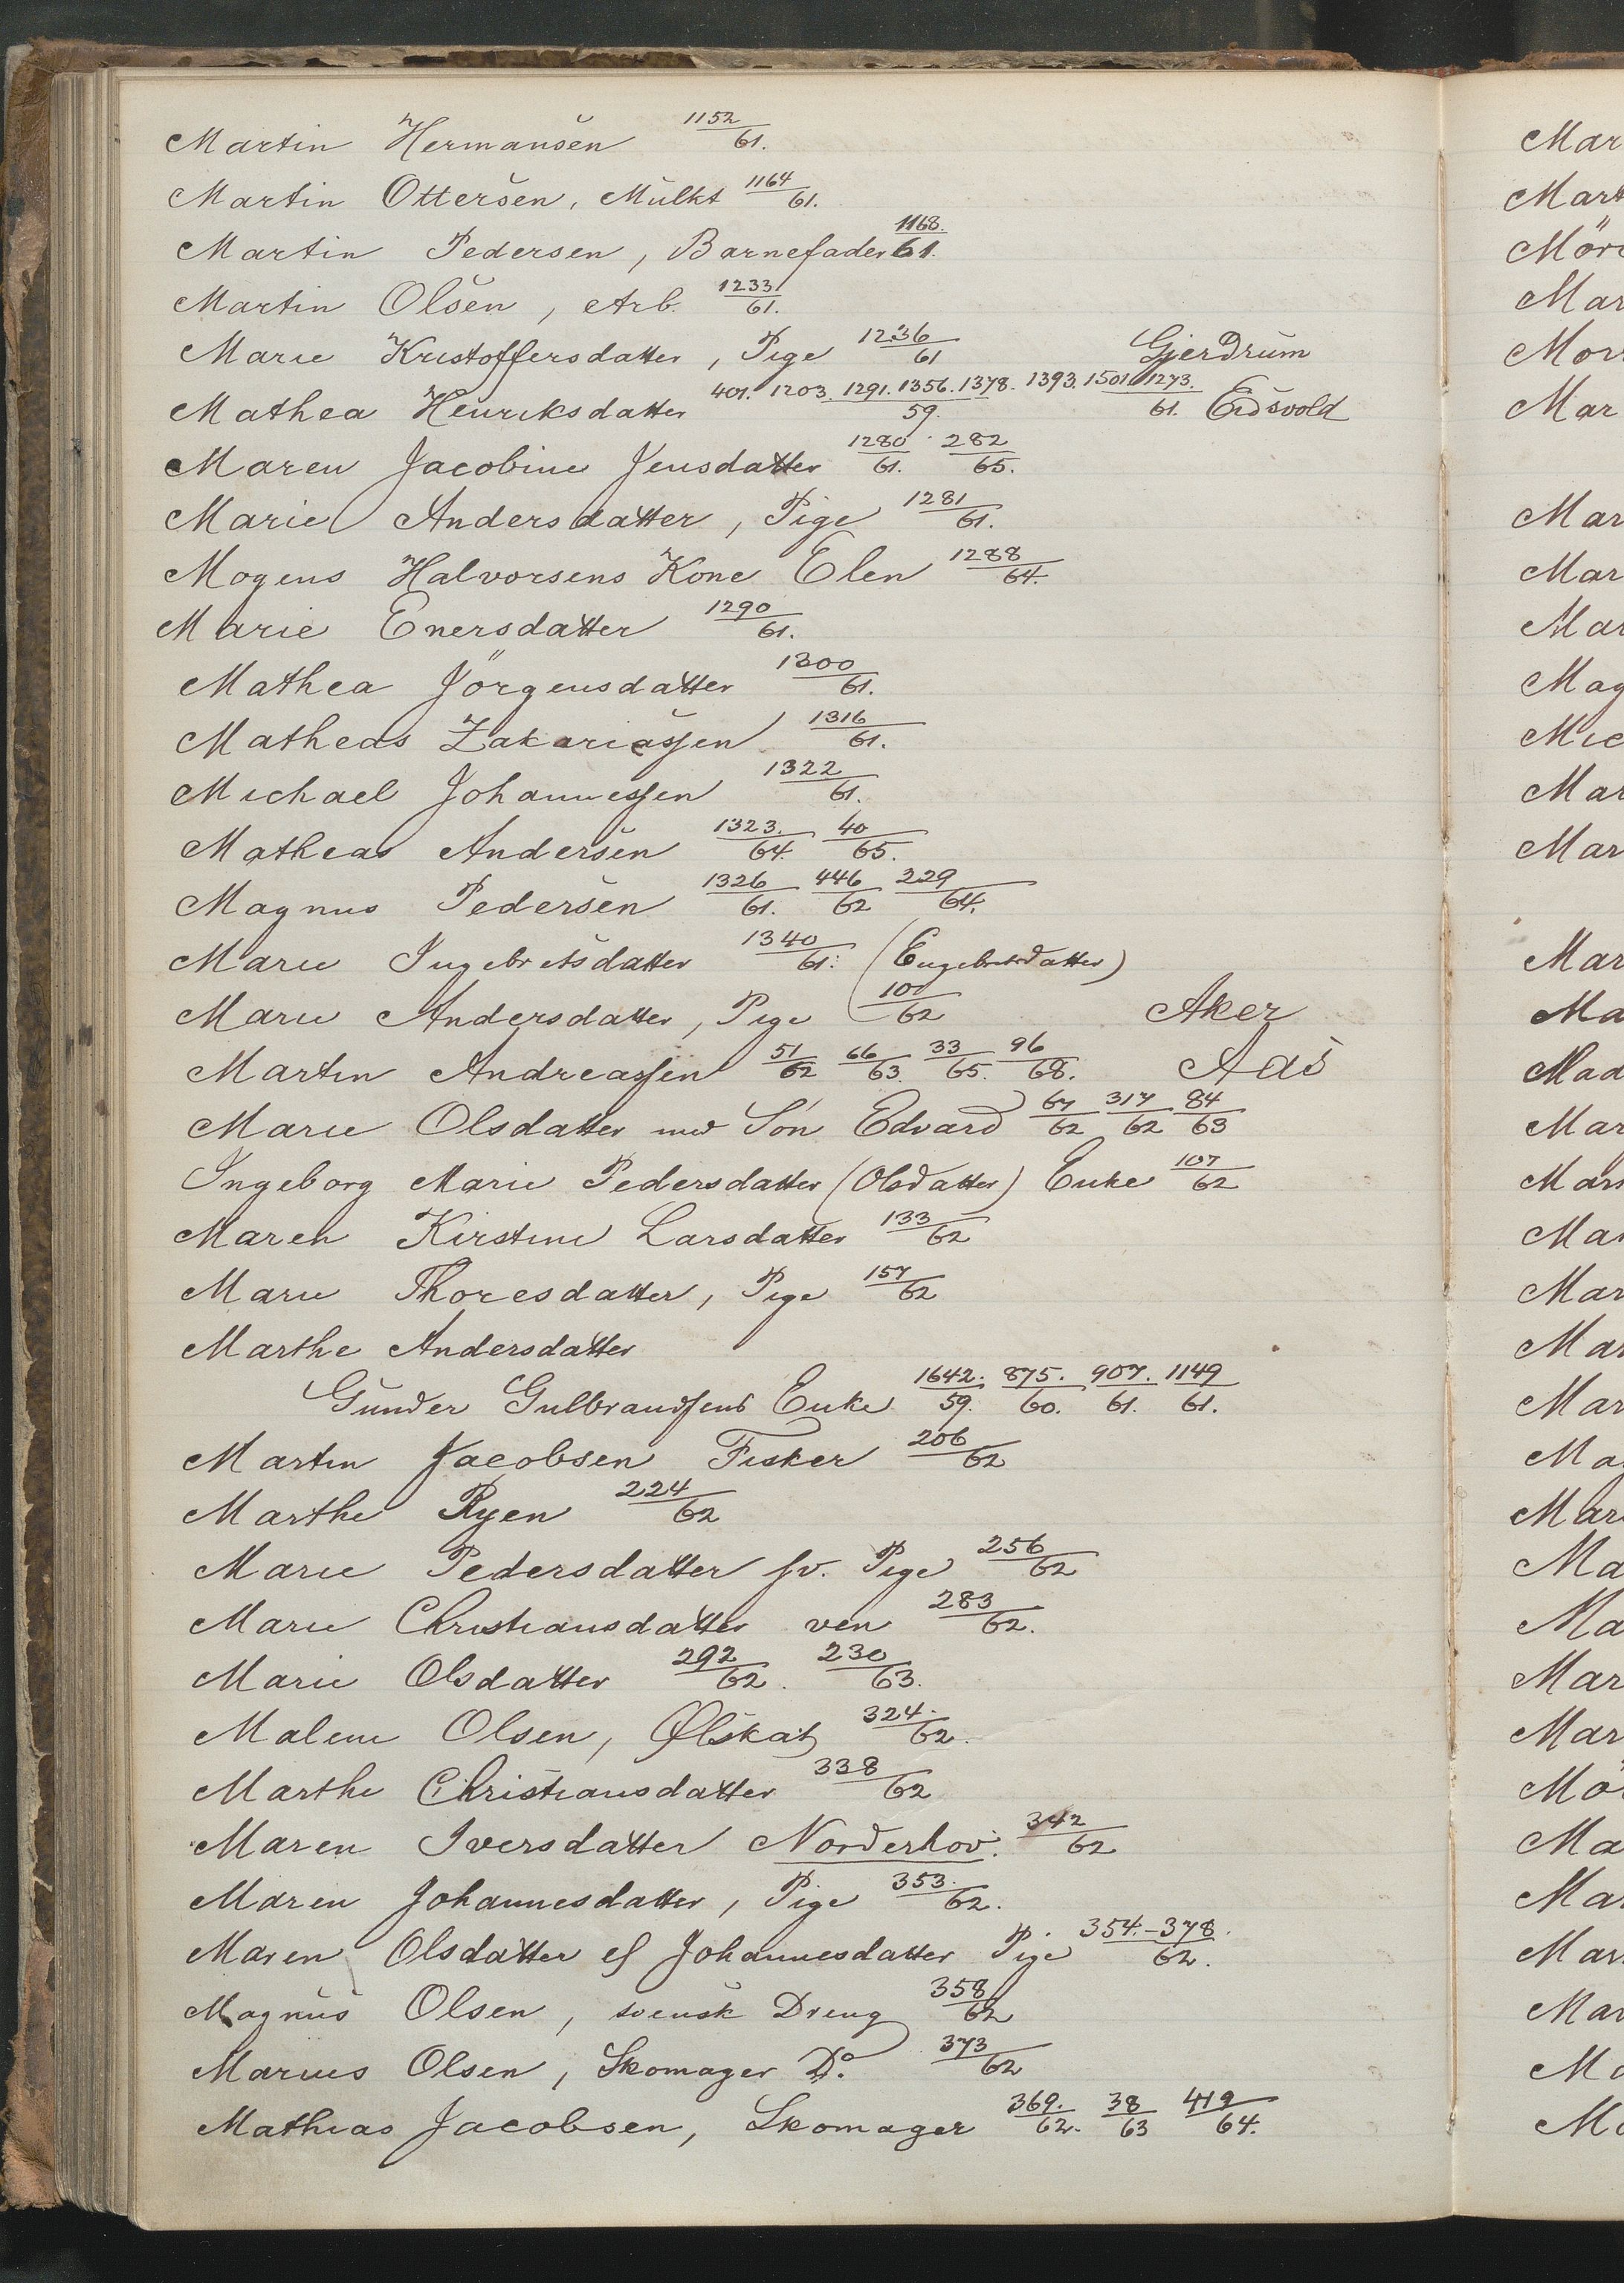 Martin Hermansen 1152/61.
Martin Ottersen, Mulkt 1164/61.
Martin Pedersen, Barnefader 1168./61.
Martin Olsen, Arb. 1233/61.
Marie Kristoffersdatter, Pige 1236/61 Gjerdrum
Mathea Henriksdatter 401. 1203. 1291. 1356. 1378. 1393. 1501./59. 1273./61. Eidsvold
Maren Jacobine Jensdatter 1280/61. 282/65.
Marie Andersdatter, Pige 1281/61.
Mogens Halvorsens Kone Elen 1288/64.
Marie Enersdatter 1290/61.
Mathea Jörgensdatter 1300/61.
Matheas Zakariassen 1316/61.
Michael Johannessen 1322/61.
Matheas Andersen 1323./64. 40/65.
Magnus Pedersen 1326/61. 446/62 229/64.
Marie Ingebretsdatter 1340/61. (Engebretsdatter)
Marie Andersdatter, Pige 100/62 Aker
Martin Andreassen 51/62 66/63. 33/65. 96/68. Aas
Marie Olsdatter med Sön Edvard 67/62 317/62 84/63
Ingeborg Marie Pedersdatter (Olsdatter) Enke 107/62
Maren Kirstine Larsdatter 133/62
Marie Thoresdatter, Pige 157/62
Marthe Andersdatter
Gunder Gulbrandsens Enke 1642./59. 875./60. 907./61. 1149/61.
Martin Jacobsen Fisker 206/62
Marthe Ryen 224/62
Marie Pedersdatter sv. Pige 256/62
Marie Christiansdatter ven 283/62.
Marie Olsdatter 292/62. 230/63.
Malene Olsen, Ølskat 324./62.
Marthe Christiansdatter 338/62
Maren Iversdatter Norderhov. 342/62
Maren Johannesdatter, Pige 353./62.
Maren Olsdatter el Johannesdatter Pige 354.-378./62.
Magnus Olsen, svensk Dreng 358/62
Marius Olsen, Skomager Do. 373/62
Mathias Jacobsen, Skomager 369./62. 38/63 419/64.